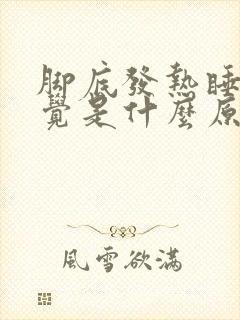 腳底發熱睡
覺是什麼原
風雪欲滿